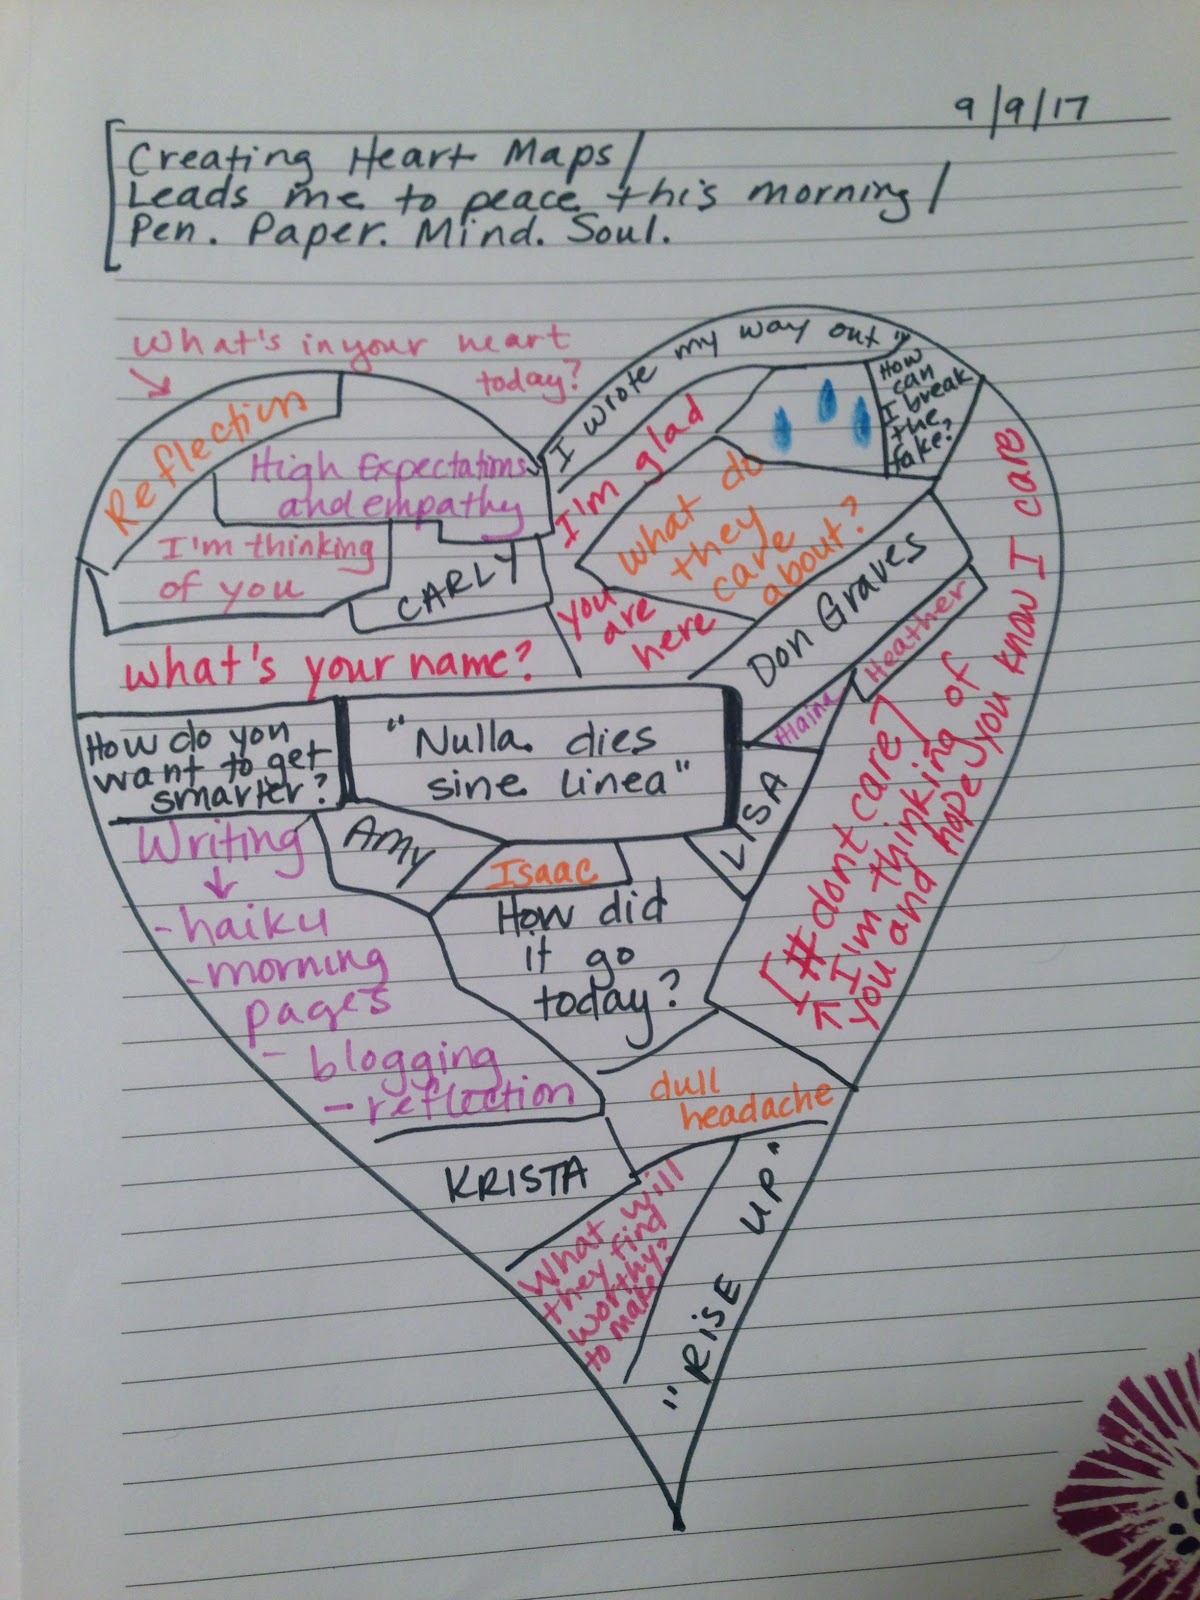 9/9/17
Creating Heart Maps/
Leads me to peace this morning/
Pen. Paper. Mind. Soul.
What's in your heart
today?
Reflection
High Expectations
and empathy
I'm thinking
of you
CARLY
What's your name?
I wrote my way out"
I'm glad
How
can
I break
the
fake?
What do
they
care
about?
you
are
here
Don Graves
Heather
Alaina
LISA
[#dontcare]
I'm thinking of
you and hope you know I care
How do you
want to get
smarter?
"Nulla dies
sine linea"
AMY
Isaac
How did
it go
today?
Writing
- haiku
- morning
pages
- blogging
- reflection
dull
headache
KRISTA
What will
they find
worthy
to make?
"RiSE UP"